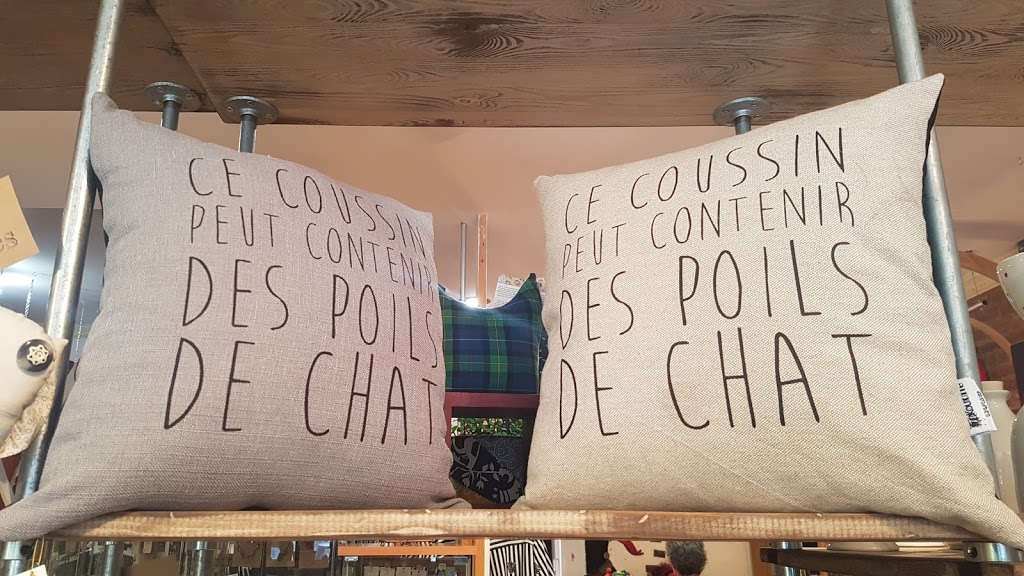 CE COUSSIN
PEUT CONTENIR
DES POILS
DE CHAT
CE COUSSIN
PEUT CONTENIR
DES POILS
DE CHAT